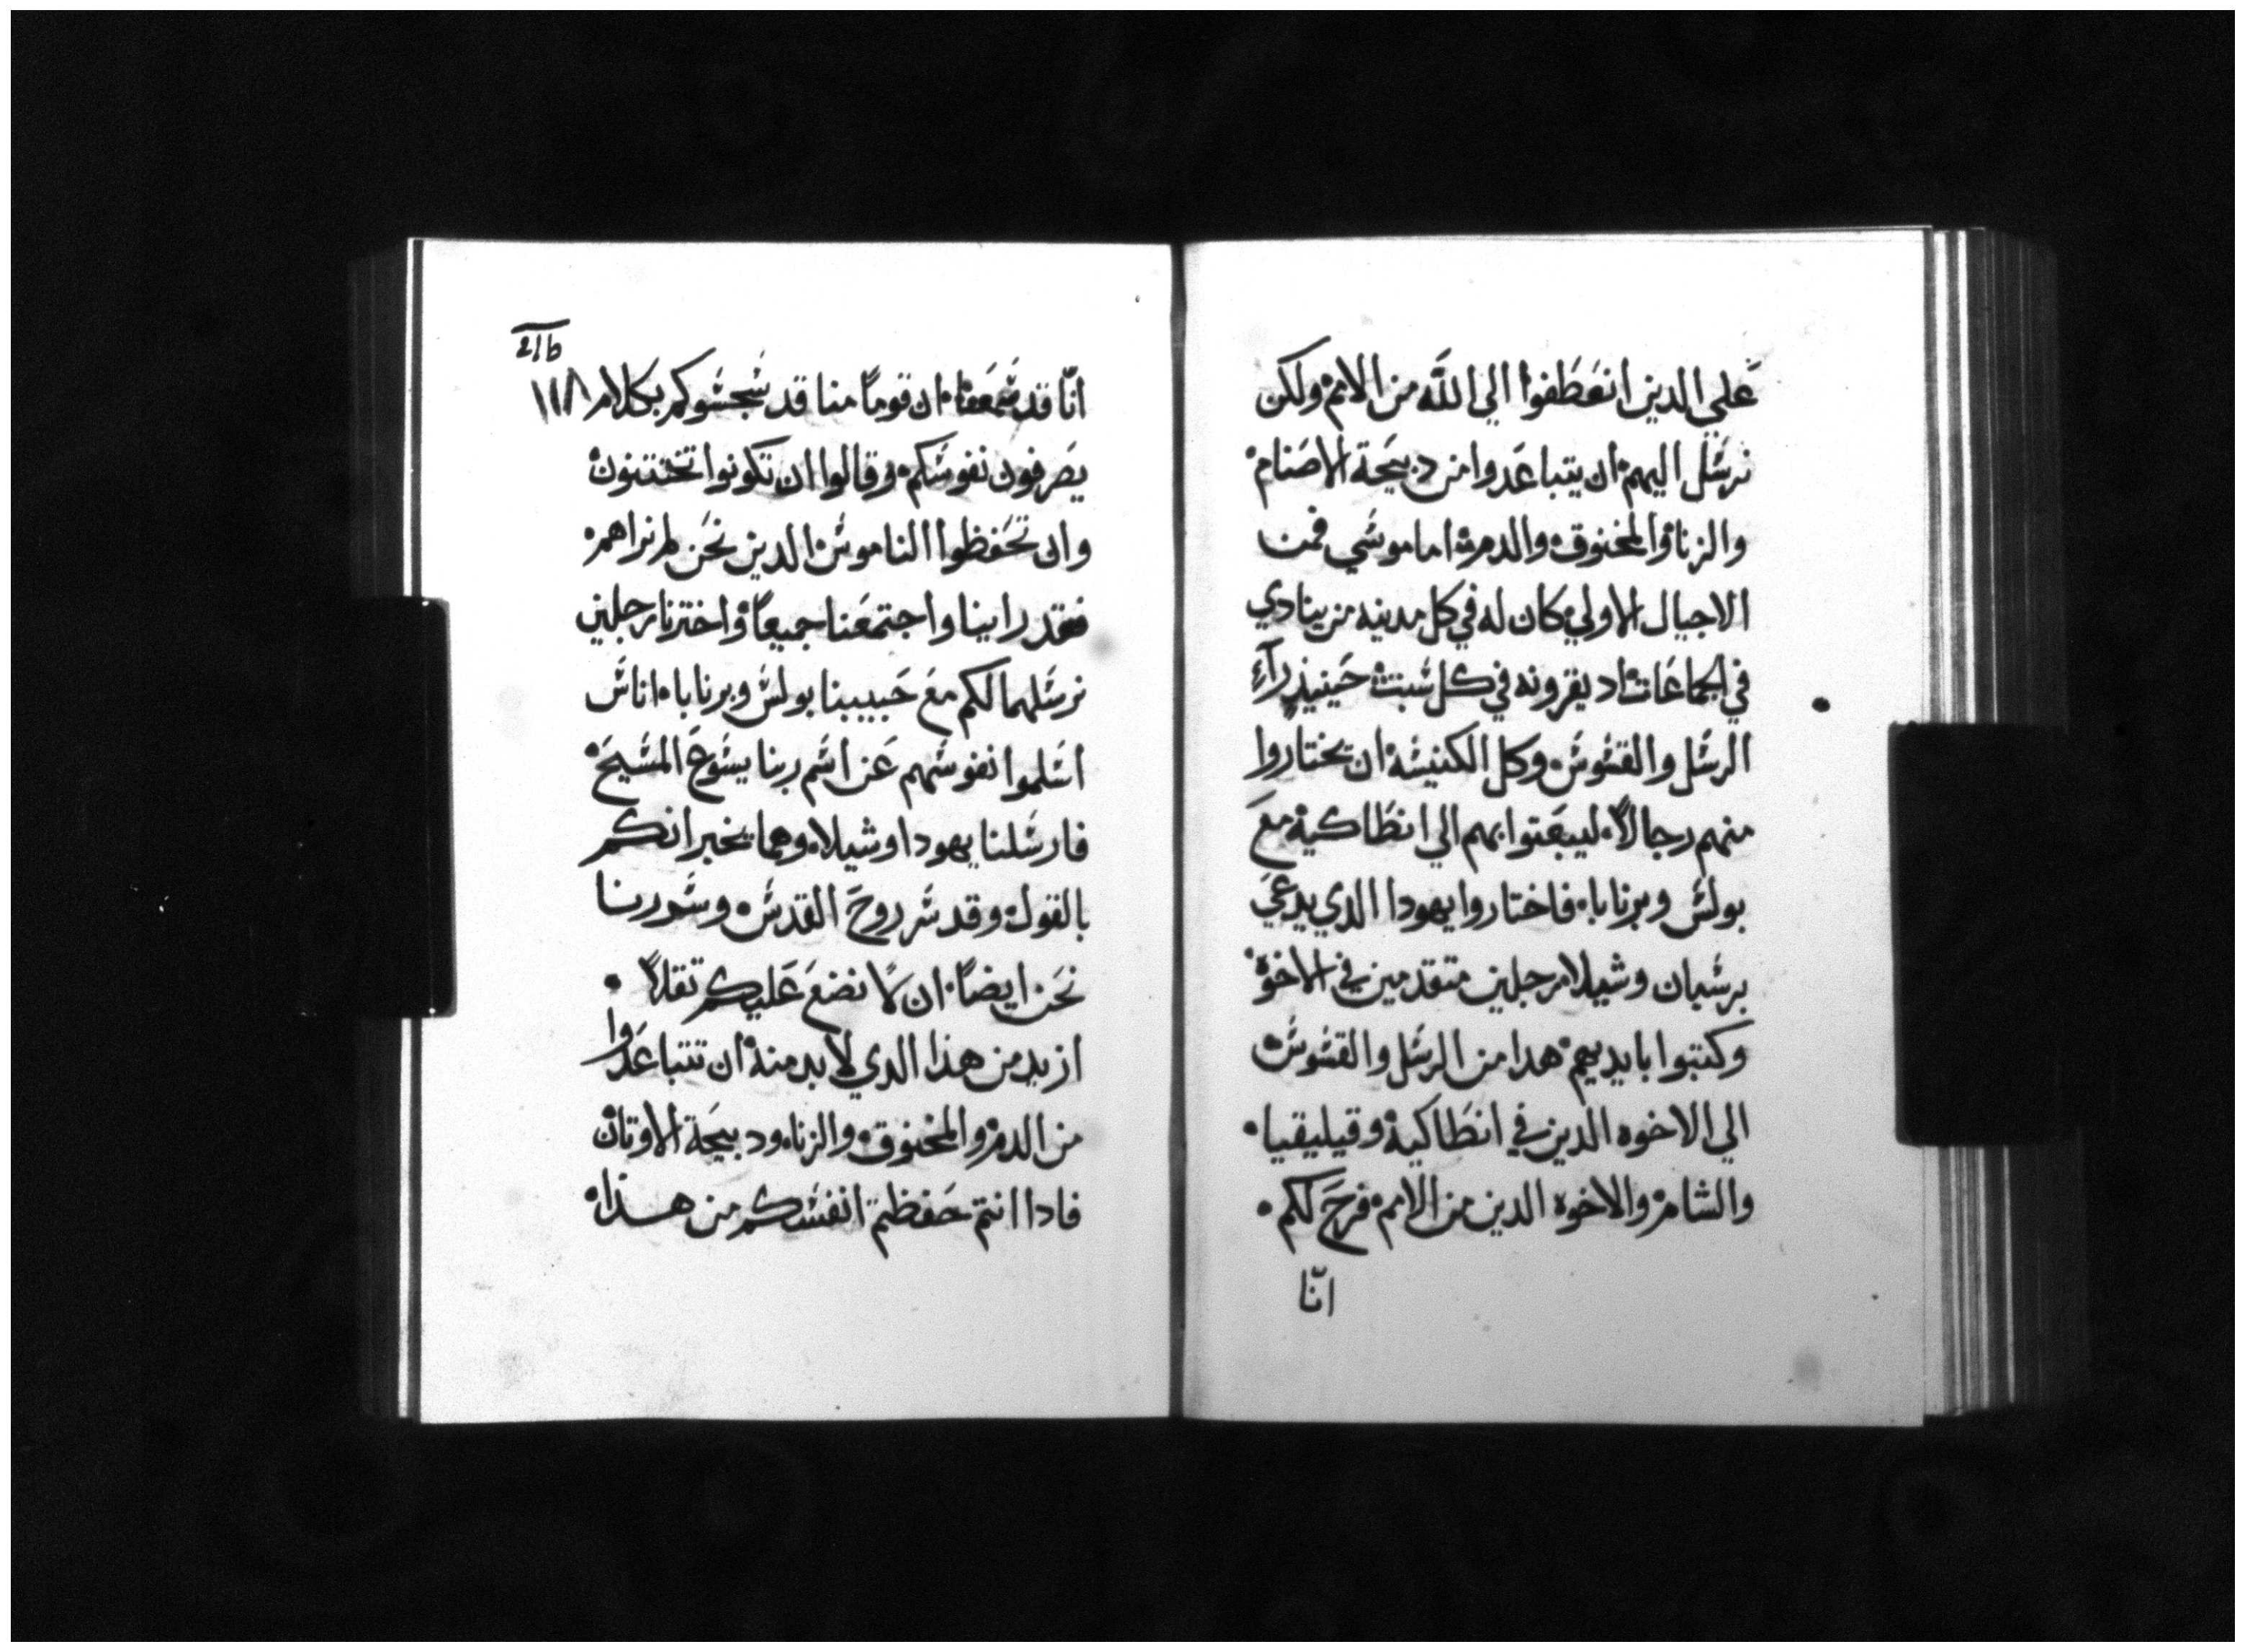 علي الدين انعطفوا الي الله من الامم ولكن
نرسل اليهم ان يتباعدوا من دبيحة الاصنام
والزنا والمخنوق والدم اما موسي فمن
الاجيال الاولي كان له في كل مدينه من ينادي
في الجماعات اد يقرونه في كل سبت حينيذ رآء
الرسل والقسوس وكل الكنيسه ان يختاروا
منهم رجالاً ليبعتوا بهم الي انطاكية مع
بولس وبرنابا فاختاروا يهودا الدي يدعي
برسبان وشيلا رجلين متقدمين في الاخوة
وكتبوا بايديهم هدا من الرسل والقسوس
الي الاخوه الدين في انطاكية وقيليقيا
والشام والاخوه الدين من الامم فرح لكم
انّا
انّا قد سمعنا ان قوماً منا قد سجسوكم بكلام
يصرفون نفوسكم وقالوا ان تكونوا تختتنون
وان تحفظوا الناموس الدين نحن لم نراهم
فقد راينا واجتمعنا جميعاً واخترنا رجلين
نرسلهما لكم مع حبيبنا بولس وبرنابا اناس
اسلموا نفوسهم عن اسم ربنا يسوع المسيح
فارسلنا يهودا وشيلا وهما يخبرانكم
بالقول وقد سر روح القدس وسررنا
نحن ايضاً ان لا نضع عليكم تقلاً
ازيد من هذا الدي لا بد منه ان تتباعدوا
من الدم والمخنوق والزنا ودبيحة الاوتان
فادا انتم حفظتم انفسكم من هذا